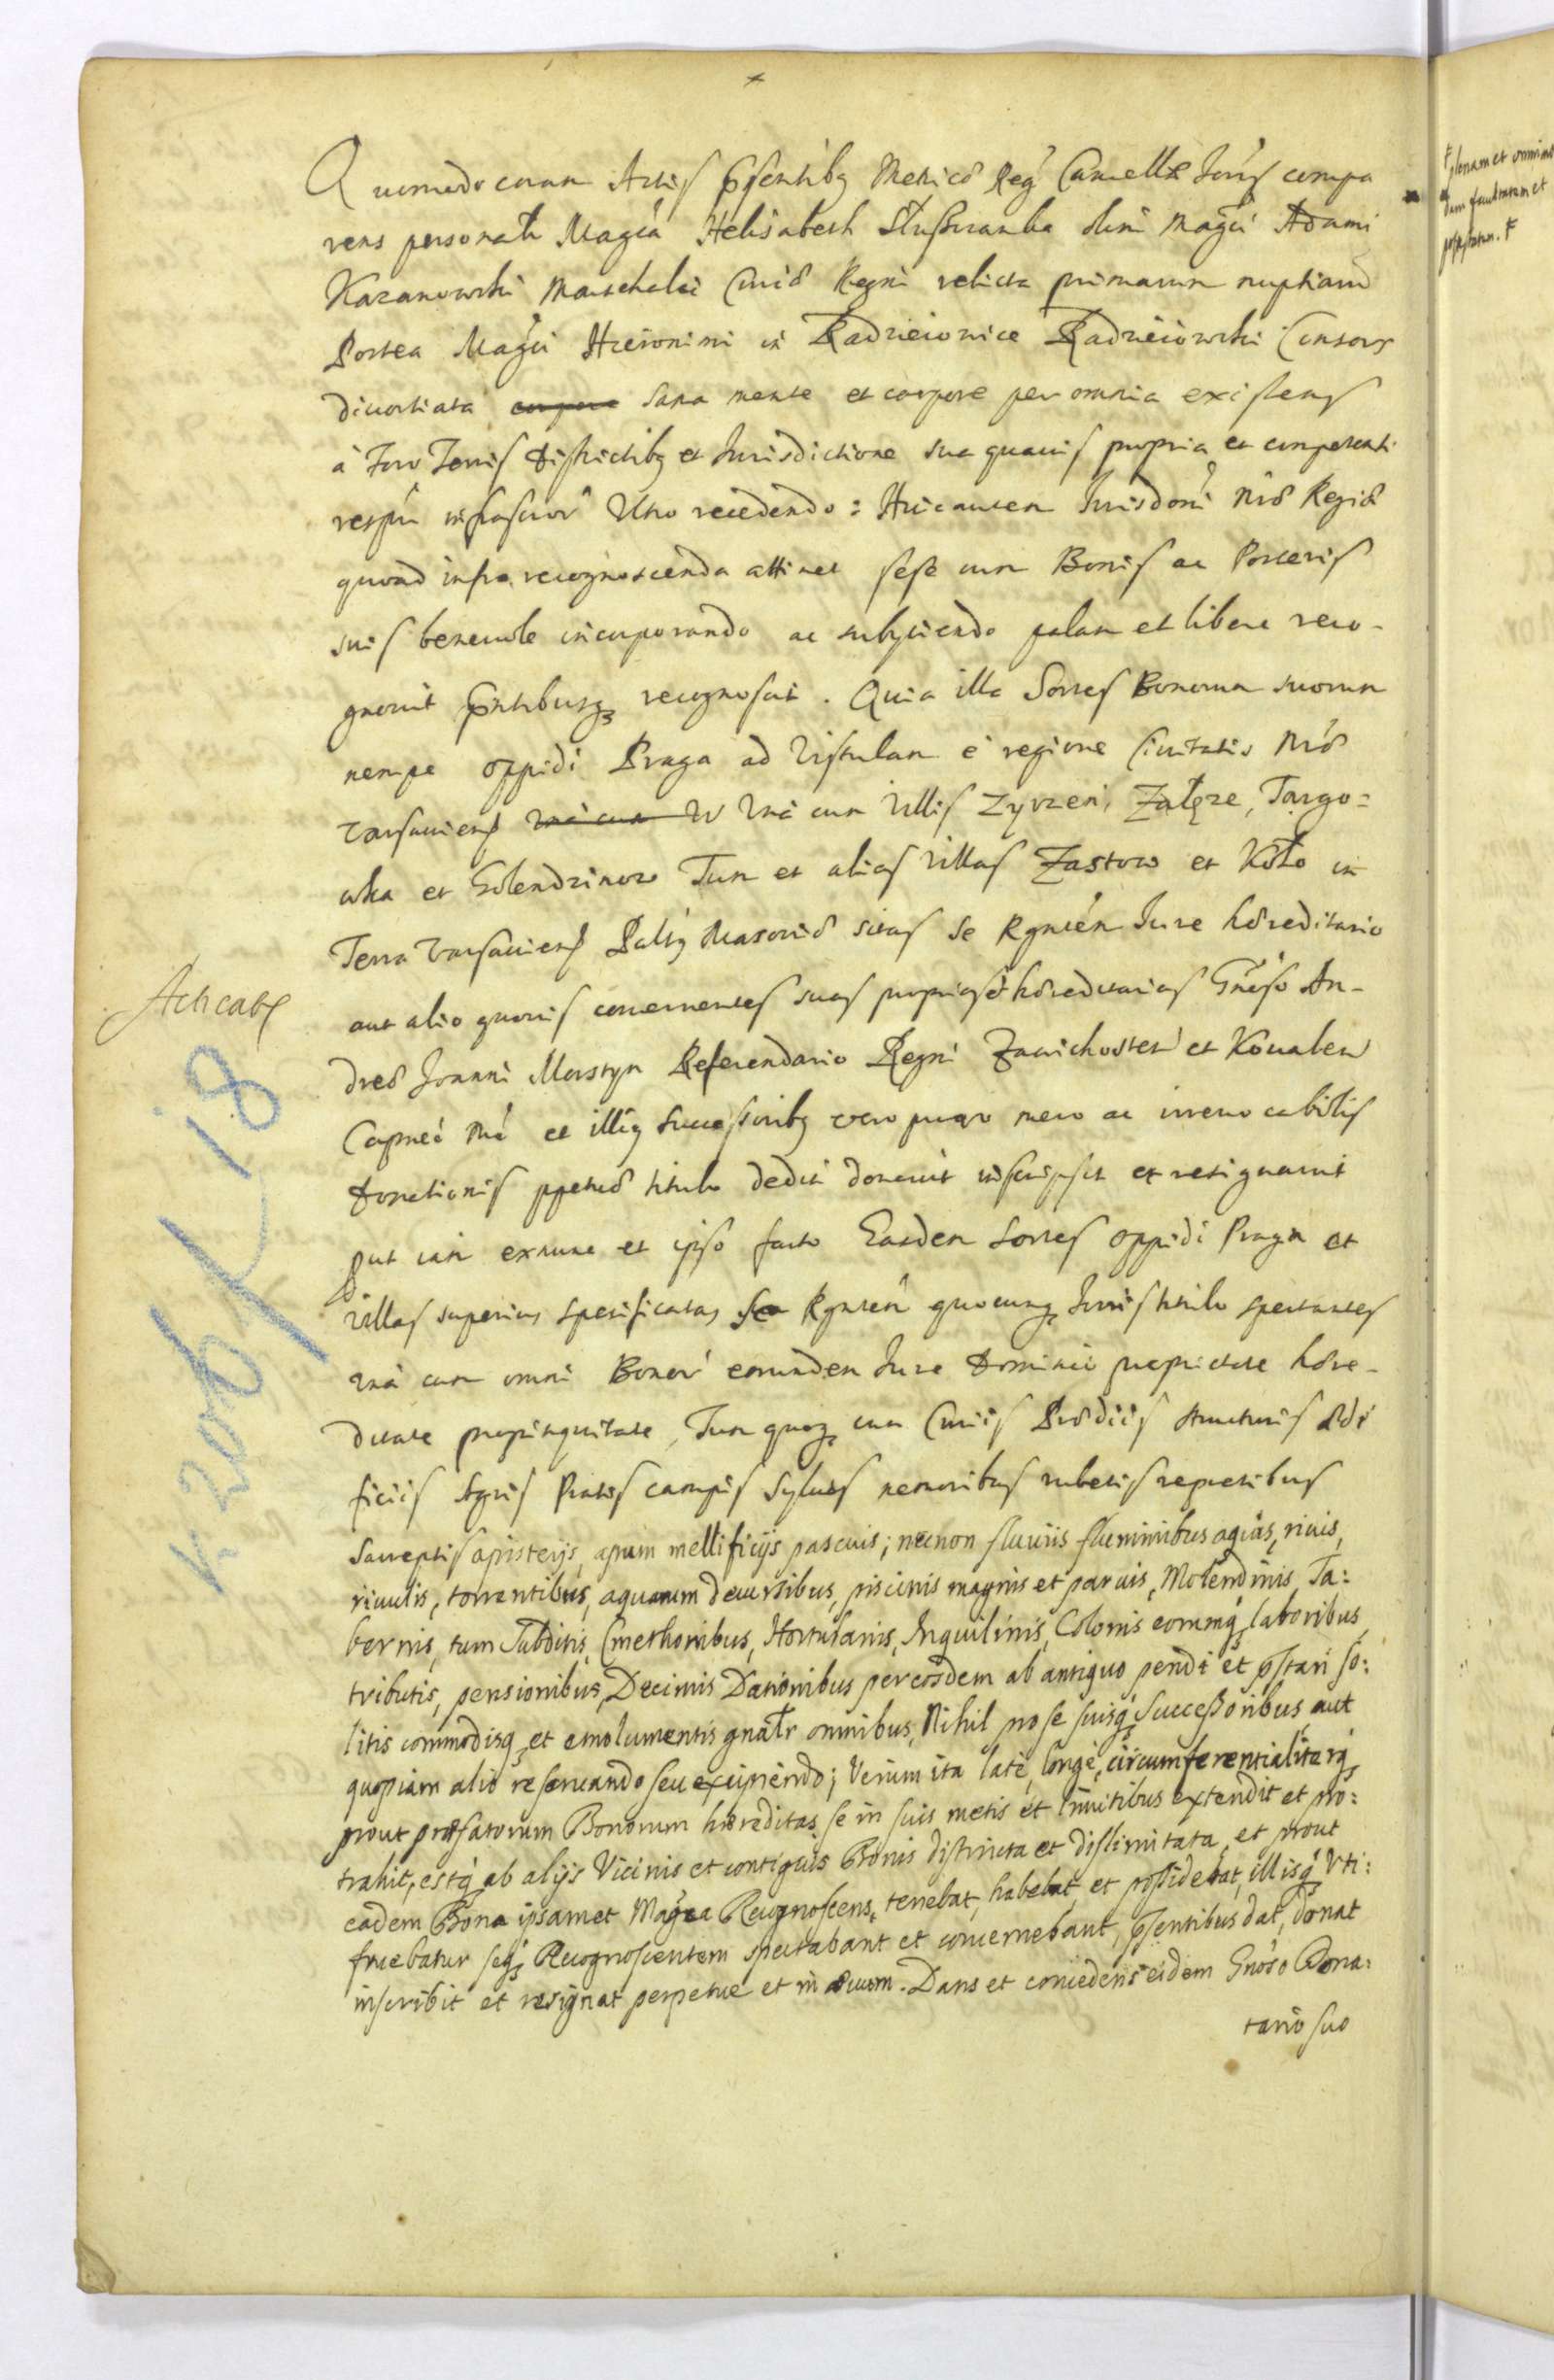 Quomodo coram Actis pſentibꝫ Metricæ Regⁿ Cancellæ Maris compa
rens personalr Magca Helisabeth Słuſzczanka olim Magci Adami
Kazanowski Marschalci Curiæ Regni relicta primarum nuptiarū
Postea Magci Hieronimi in Radzieiowice Radzieiowski Consors
diuortiata corpore sana mente et corpore per omnia existens
à Foro Terris Districtibꝫ et Iurisdictione sua quauis propria et competenti
respū infrascror Vtro recedendo: Huic autem Iurisdoni nræ Regiæ
quoad infra recognoscenda attinet seſe cum Bonis ac Posteris
suis beneuole incorporando ac subyciendo palam et libere reco-
gnouit pntibusqꝫ recognoscit. Quia illa Sortes Bonorum suorum
nempe oppidi Praga ad Vistulam è regione Ciuitatis nræ
Varsauiens vnà cum W Vnà cum Villis Zyrzen, Załęze, Targo=
wka et Golendzinow Tum et alias Villas Zastow et Koło in
Terra Varsauiens Paltꝫ Masouiæ sitas se Rgntem Iure hæreditario
aut alio quouis concernentes suas proprias et hæreditarias Gnoso An-
dreæ Joanni Morstyn Referendario Regni Zawichosten et Koualen
Capneo
et illiꝫ Successoribꝫ vero puro mero ac irreuocabilis
Donationis ppetuæ titulo dedit donauit inscripsit et resignauit
put iam exnunc et ipso facto Easdem Sortes oppidi Praga et
Villas superius specificatas se Rgntem quocunqꝫ Iuris titulo spectantes
vnà cum omni Bonor eorundem Iure Dominio proprietate hære-
ditate propinquitate, Tum quoqꝫ cum Curiis Prædiis structuris ædi
ficiis Agris Pratis campis Syluis nemoribus rubetis repretibus
Sarreptis apisterijs, apum mellificijs pascuis; necnon fluuiis fluminibus aquis, riuis,
riuulis, torrentibus, aquarum decursibus, piscinis magnis et paruis, Molendinis, Ta:
bernis, tum Subditis, Cmethonibus, Hortulanis, Inquilinis, Colonis eorumqꝫ laboribus
tributis, pensionibus, Decimis Dationibus per eosdem ab antiquo pendi et pſtari so:
litis commodisqꝫ et emolumentis gnalr omnibus, Nihil pro se suisqꝫ Successoribus, aut
quopiam alio reseruando seu excipiendo; Verum ita latè, longè, circumferentialiterqꝫ
prout præfatorum Bonorum hæreditas se in suis metis et limitibus extendit et pro:
trahit, estqꝫ ab alijs Vicinis et contiguis Bonis distincta et dislimitata, et prout
eadem Bona ipsamet Magca Recognoscens, tenebat, habebat, et possidebat, illisqꝫ Vti:
fruebatur seqꝫ Recognoscentem spectabant et concernebant, pſentibus dat, donat
inscribit et resignat perpetue et in æuum. Dans et concedens eidem Gnoso Dona:
tario suo
Acticatꝭ
K 206 / 18
plenam et omnimo
dam facultatem et
potestatem.